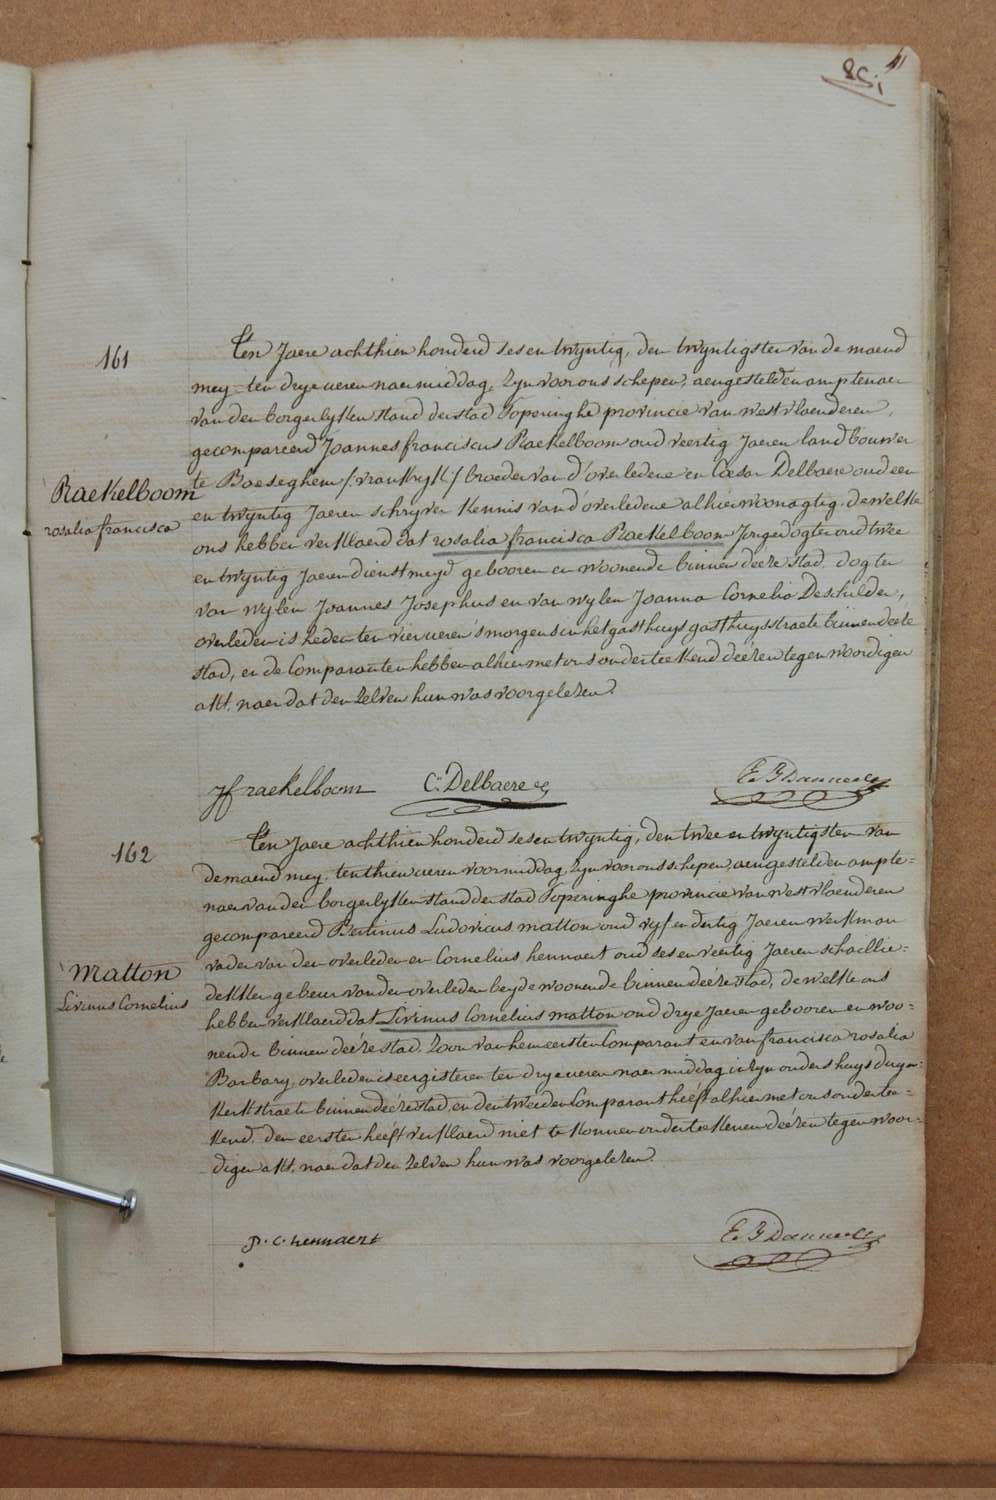 161
Ten Jaere achthien honderd ses en twyntig, den twyntigsten van de maend
mey ten drye ueren naermiddag, zyn voor ons schepen, aengestelden amptenaer
van den borgerlyken stand der stad Poperinghe provincie van westvlaenderen,
gecompareerd Joannes franciscus Raekelboom oud veertig Jaeren landbouwer
te Boeseghem /: vrankryk :/ broeder van d'overledene en Cæsar Delbaere oud een
en twyntig Jaeren schryver kennis van d'overledene alhier woonagtig, dewelke
ons hebben verklaerd dat rosalia francisca Raekelboom Jonge dogter oud twee
en twyntig Jaeren dienstmeyd gebooren en woonende binnen deéze stad, dogter
van wylen Joannes Josephus en van wylen Joanna Cornelia Deschilder,
overleden is heden ten vier ueren 's morgens in het gasthuys gasthuysstraete binnen deéze
stad, en de Comparanten hebben alhier met ons onderteekend deézen tegenwoordigen
akt, naer dat den zelven hun was voorgelezen.
Raekelboom
rosalia francisca
Jf raekelboom C. Delbaere
162
Ten Jaere achthien honderd ses en twyntig, den twee en twyntigsten van
de maend mey, ten thien ueren voormiddag zyn voor ons schepen, aengestelden ampte=
naer van den borgerlyken stand der stad Poperinghe provincie van westvlaenderen
gecompareerd Bertinus Ludovicus matton oud vyf en dertig Jaeren werkman
vader van den overleden en Cornelius hennaert oud ses en veertig Jaeren schaillie=
dekker gebeur van den overleden beyde woonende binnen deéze stad, dewelke ons
hebben verklaerd dat Livinus Cornelius matton oud drye Jaeren gebooren en woo=
nende binnen deéze stad, zoon van hem eersten Comparant en van francisca rosalia
Barbary, overleden is eergisteren ten drye ueren naermiddag in zyn ouders huys
kerkstraete binnen deéze stad, en den tweeden Comparant heéft alhier met ons onderteé=
kend, den eersten heéft verklaerd niet te konnen onderteekenen deézen tegenwoor=
digen akt, naer dat den zelven hun was voorgelezen.
Matton
Livinus Cornelius
P. C. hennaert